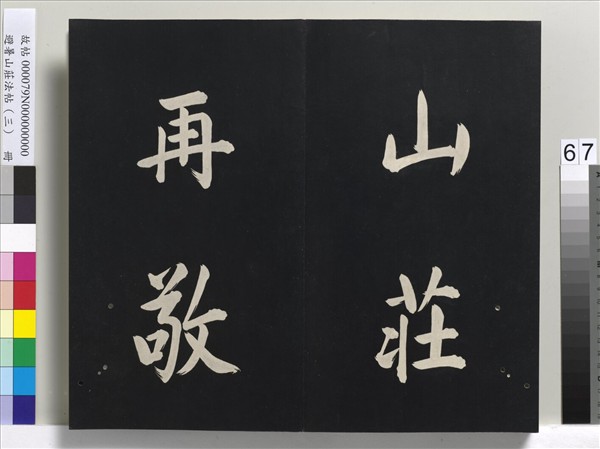 山莊
再敬
故帖 000079N000000000
避暑山莊法帖（三） 冊
67